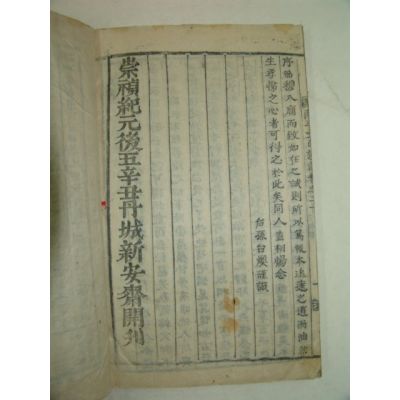 序昭穆入廟而致如在之誠則所以篤報本追遠之道油油然
生孝悌之心者可得之於此矣同人盍相惕念
台孫台煥謹識
崇禎紀元後五辛丑丹城新安齋開刊